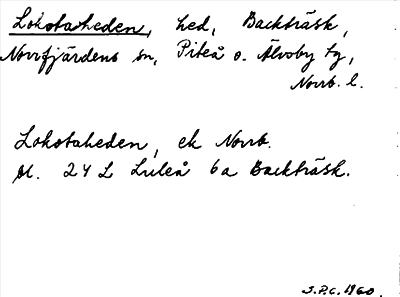 Lokstaheden, hed, Backträsk,
Norrfjärdens sn, Piteå o. Älvsby tg,
Norrb. l.
Lokstaheden, ek Norrb.
bl. 24 L Luleå 6a Backträsk.
J.P.C. 1960.